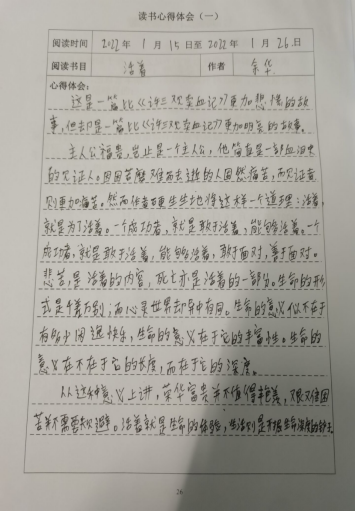 读书心得体会（一）
阅读时间 2022 年 1 月 15 日至 2022 年 1 月 26 日
阅读书目 活着 作者 余华
心得体会：
这是一篇比《许三观卖血记》更加悲惨的故
事，但却是一篇比《许三观卖血记》更加明亮的故事。
主人公福贵，岂止是一个主人公，他简直是一部血泪史
的见证人。因困苦磨难而去逝的人固然痛苦，而见证者
则更加痛苦。然而作者硬生生地将这样一个道理：活着，
就是为了活着。一个成功者，就是敢于活着，能够活着。一个
成功者，就是敢于活着，能够活着，敢于面对，善于面对。
悲苦，是活着的内容，死亡亦是活着的一部分。生命的形
式是千差万别，而心灵世界却异中有同。生命的意义似不在于
有多少困退快乐，生命的意义在于它的丰富性。生命的
意义在不在于它的长度，而在于它的深度。
从这种意义上讲，荣华富贵并不值得羡，艰难困
苦并不需要躲避。活着就是生命的体验，生活则是开掘生命深度的
26